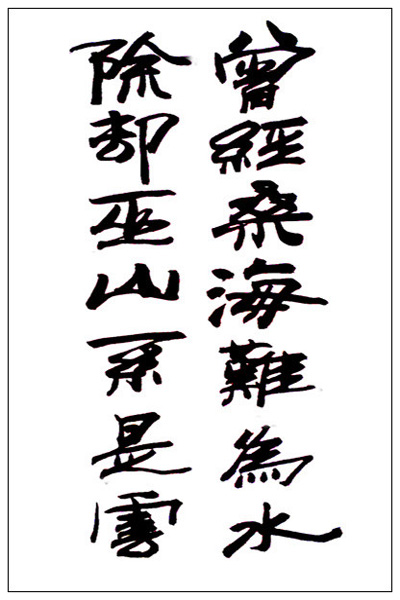 曾經桑海難為水
除却巫山不是雲